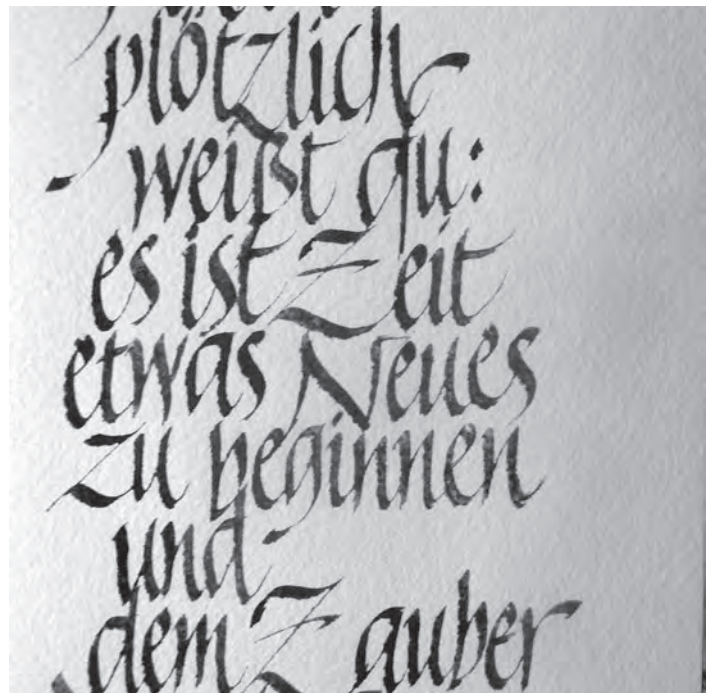 plötzlich
weißt du:
es ist Zeit
etwas Neues
zu beginnen
und
dem Zauber